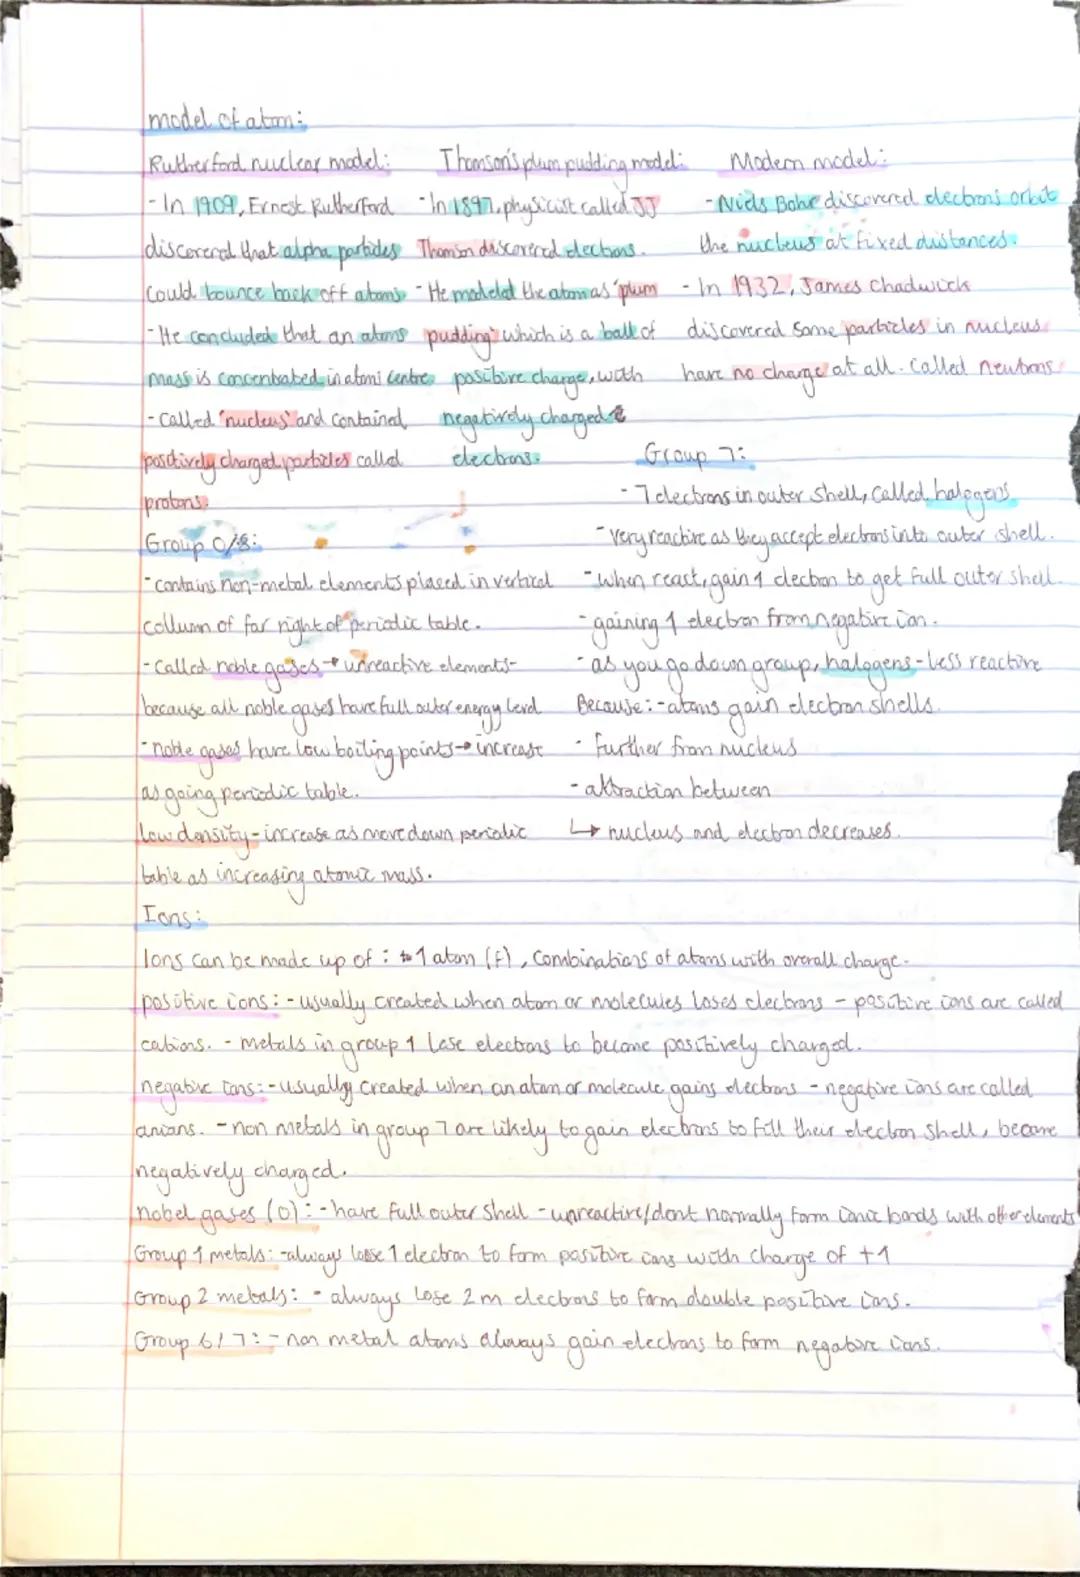 model of atom:
Rutherford nuclear model:
- In 1909, Ernest Rutherford
discovered that alpha particles
could bounce back off atoms
- He concluded that an atoms
mass is concentrated in atoms centre
- called 'nucleus' and contained
positively charged particles called
protons.
Thomson's plum pudding model:
- In 1897, physicist called JJ
Thomson discovered electrons.
- He modeled the atom as 'plum
pudding' which is a ball of
positive charge, with
negatively charged
electrons.
Modern model:
- Niels Bohr discovered electrons orbit
the nucleus at fixed distances.
- In 1932, James chadwick
discovered some particles in nucleus
have no charge at all. Called neutrons
Group 0/8:
- contains non-metal elements placed in vertical
collumn of far right of periodic table.
- called noble gases → unreactive elements -
because all noble gases have full outer energy level
- noble gases have low boiling points → increase
as going periodic table.
low density - increase as move down periodic
table as increasing atomic mass.
Group 7:
- 7 electrons in outer shell, called halogens
- very reactive as they accept electrons into outer shell.
- when react, gain 1 electron to get full outer shell.
- gaining 1 electron from negative ion.
- as you go down group, halogens - less reactive
Because: - atoms gain electron shells.
- further from nucleus
- attraction between
↳ nucleus and electron decreases.
Ions:
Ions can be made up of : 1 atom (F), combinations of atoms with overall charge.
positive ions: - usually created when atom or molecules loses electrons - positive ions are called
cations. - metals in group 1 lose electrons to become positively charged.
negative ions: - usually created when an atom or molecule gains electrons - negative ions are called
anions. - non metals in group 7 are likely to gain electrons to fill their electron shell, become
negatively charged.
nobel gases (0): - have full outer shell - unreactive/dont normally form ionic bonds with other elements
Group 1 metals: - always lose 1 electron to form positive ions with charge of +1
Group 2 metals: - always lose 2 m electrons to form double positive ions.
Group 6/7: - non metal atoms always gain electrons to form negative ions.